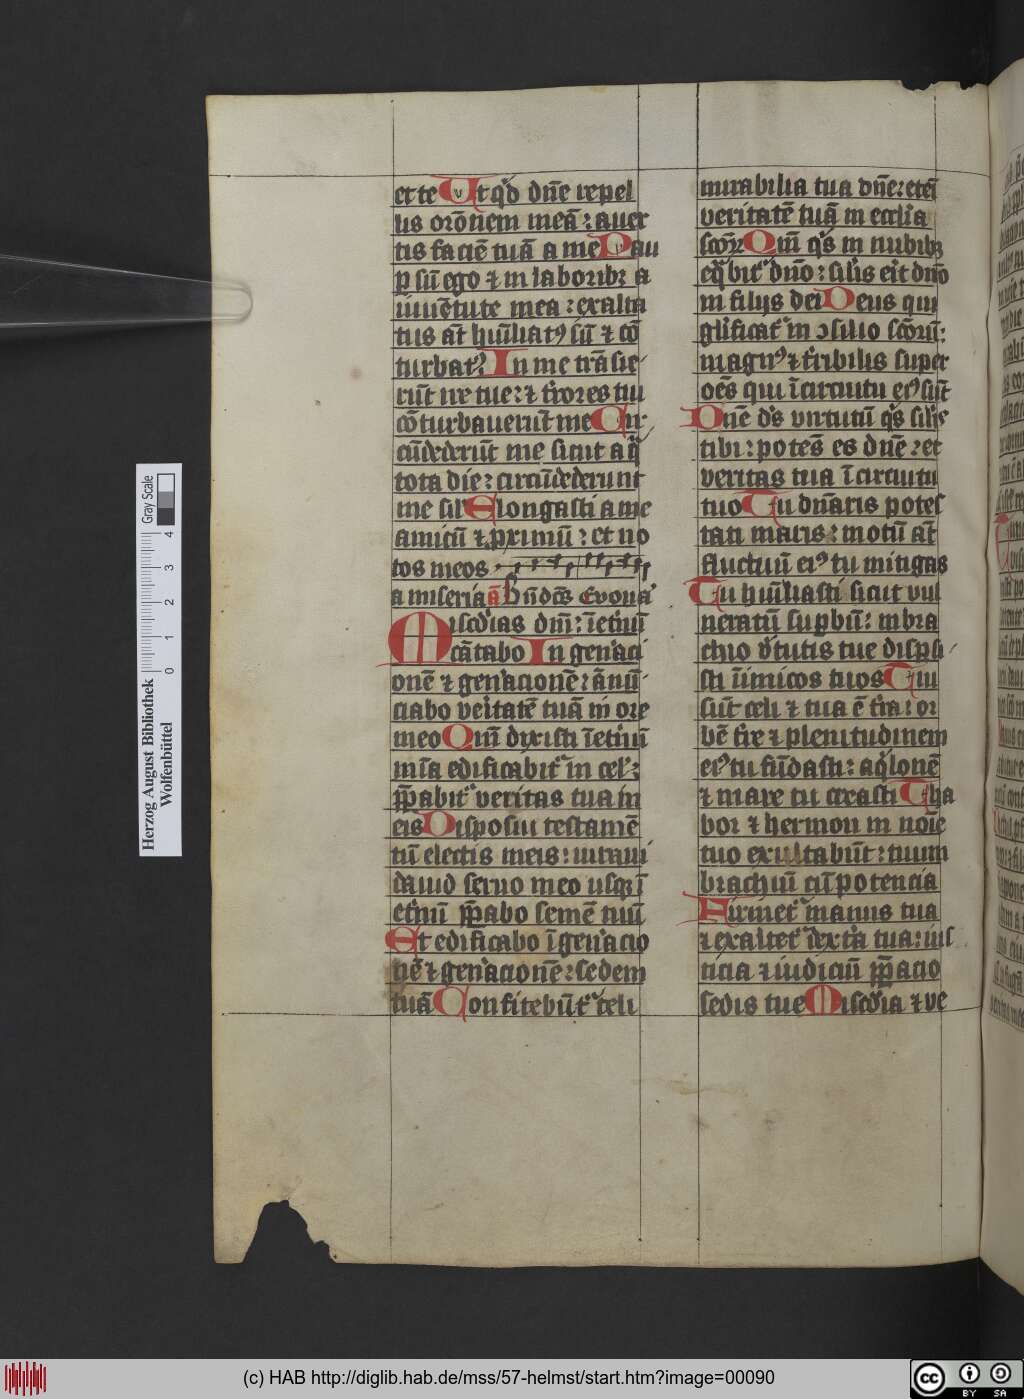 et te Ut q͛d dn̄e repel
lis orōnem meā : auer
tis faciē tuā a me Pau
p su͞ ego ⁊ in laboribꝫ a
iuuētute mea : exalta
tus at͞ hu͞iliatꝰ su͞ ⁊ cō
turbatꝰ In me trā sie
ru͞t ire tue : ⁊ t͛rores tui
cōturbaueru͞t me Cir
cu͞dederu͞t me sicut aq͛
tota die : circu͞dederunt
me sil͛ Elongasti a me
amicu͞ ⁊ ꝓximu͞ : et no
tos meos
a miseria a͞ Bn͞dcs͞ Euoua
Misc͛dias dn͞i : ī et͛nu͞
cātabo In gen͛aci
onē ⁊ gen͛acionē : ānu͞
ciabo ve͛itatē tuā in ore
meo Qm͞ dyxisti ī et͛nu͞
mīa edificabit᷑ in cel͛ :
p͞pabit᷑ veritas tua in
eis Disposui testamē
tu͞ electis meis : iuraui
dauid seruo meo usqꝫ ī
et͛nu͞ p͞pabo semē tuu͞
Et edificabo ī gen͛acio
nē ⁊ gen͛acionē : sedem
tuā Confitebu͞t᷑ celi
mirabilia tua dn̄e : eten͞
veritatē tuā in eccl͞ia
sc͞oꝝ Qm͞ q͛s in nubibꝫ
eq͛bit᷑ dn͞o : sil͛is e͛it dn͞o
in filijs dei Deus qui
gl͞ificat᷑ in ꝯsilio sc͞oru͞ :
magnꝰ ⁊ t͛ribilis super
oēs qui ī circuitu eiꝰ su͞t
Dn͞e d͞s virtutu͞ q͛s sil͛is
tibi : potēs es dn͞e : et
veritas tua ī circuitu
tuo Tu dn͞aris potes
tati maris : motu͞ at͞
fluctuu͞ eiꝰ tu mitigas
Tu hu͞iliasti sicut vul
neratu͞ supbu͞ : in bra
chio v͛tutis tue disp͛si
sti īimicos tuos Tui
su͞t celi ⁊ tua ē t͛ra : or
bē t͛re ⁊ plenitudinem
eiꝰ tu fu͞dasti : aq͛lonē
⁊ mare tu creasti Tha
bor ⁊ hermon in noīe
tuo exultabu͞t : tuum
brachiu͞ cu͞ potencia
Firmet᷑ manus tua
⁊ exaltet᷑ dext͛a tua : ius
ticia ⁊ iudiciu͞ p͞pacio
sedis tue Misc͛dia ⁊ ve
Herzog August Bibliothek
Wolfenbüttel
Gray Scale
0 1 2 3 4
(c) HAB http://diglib.hab.de/mss/57-helmst/start.htm?image=00090
cc BY SA